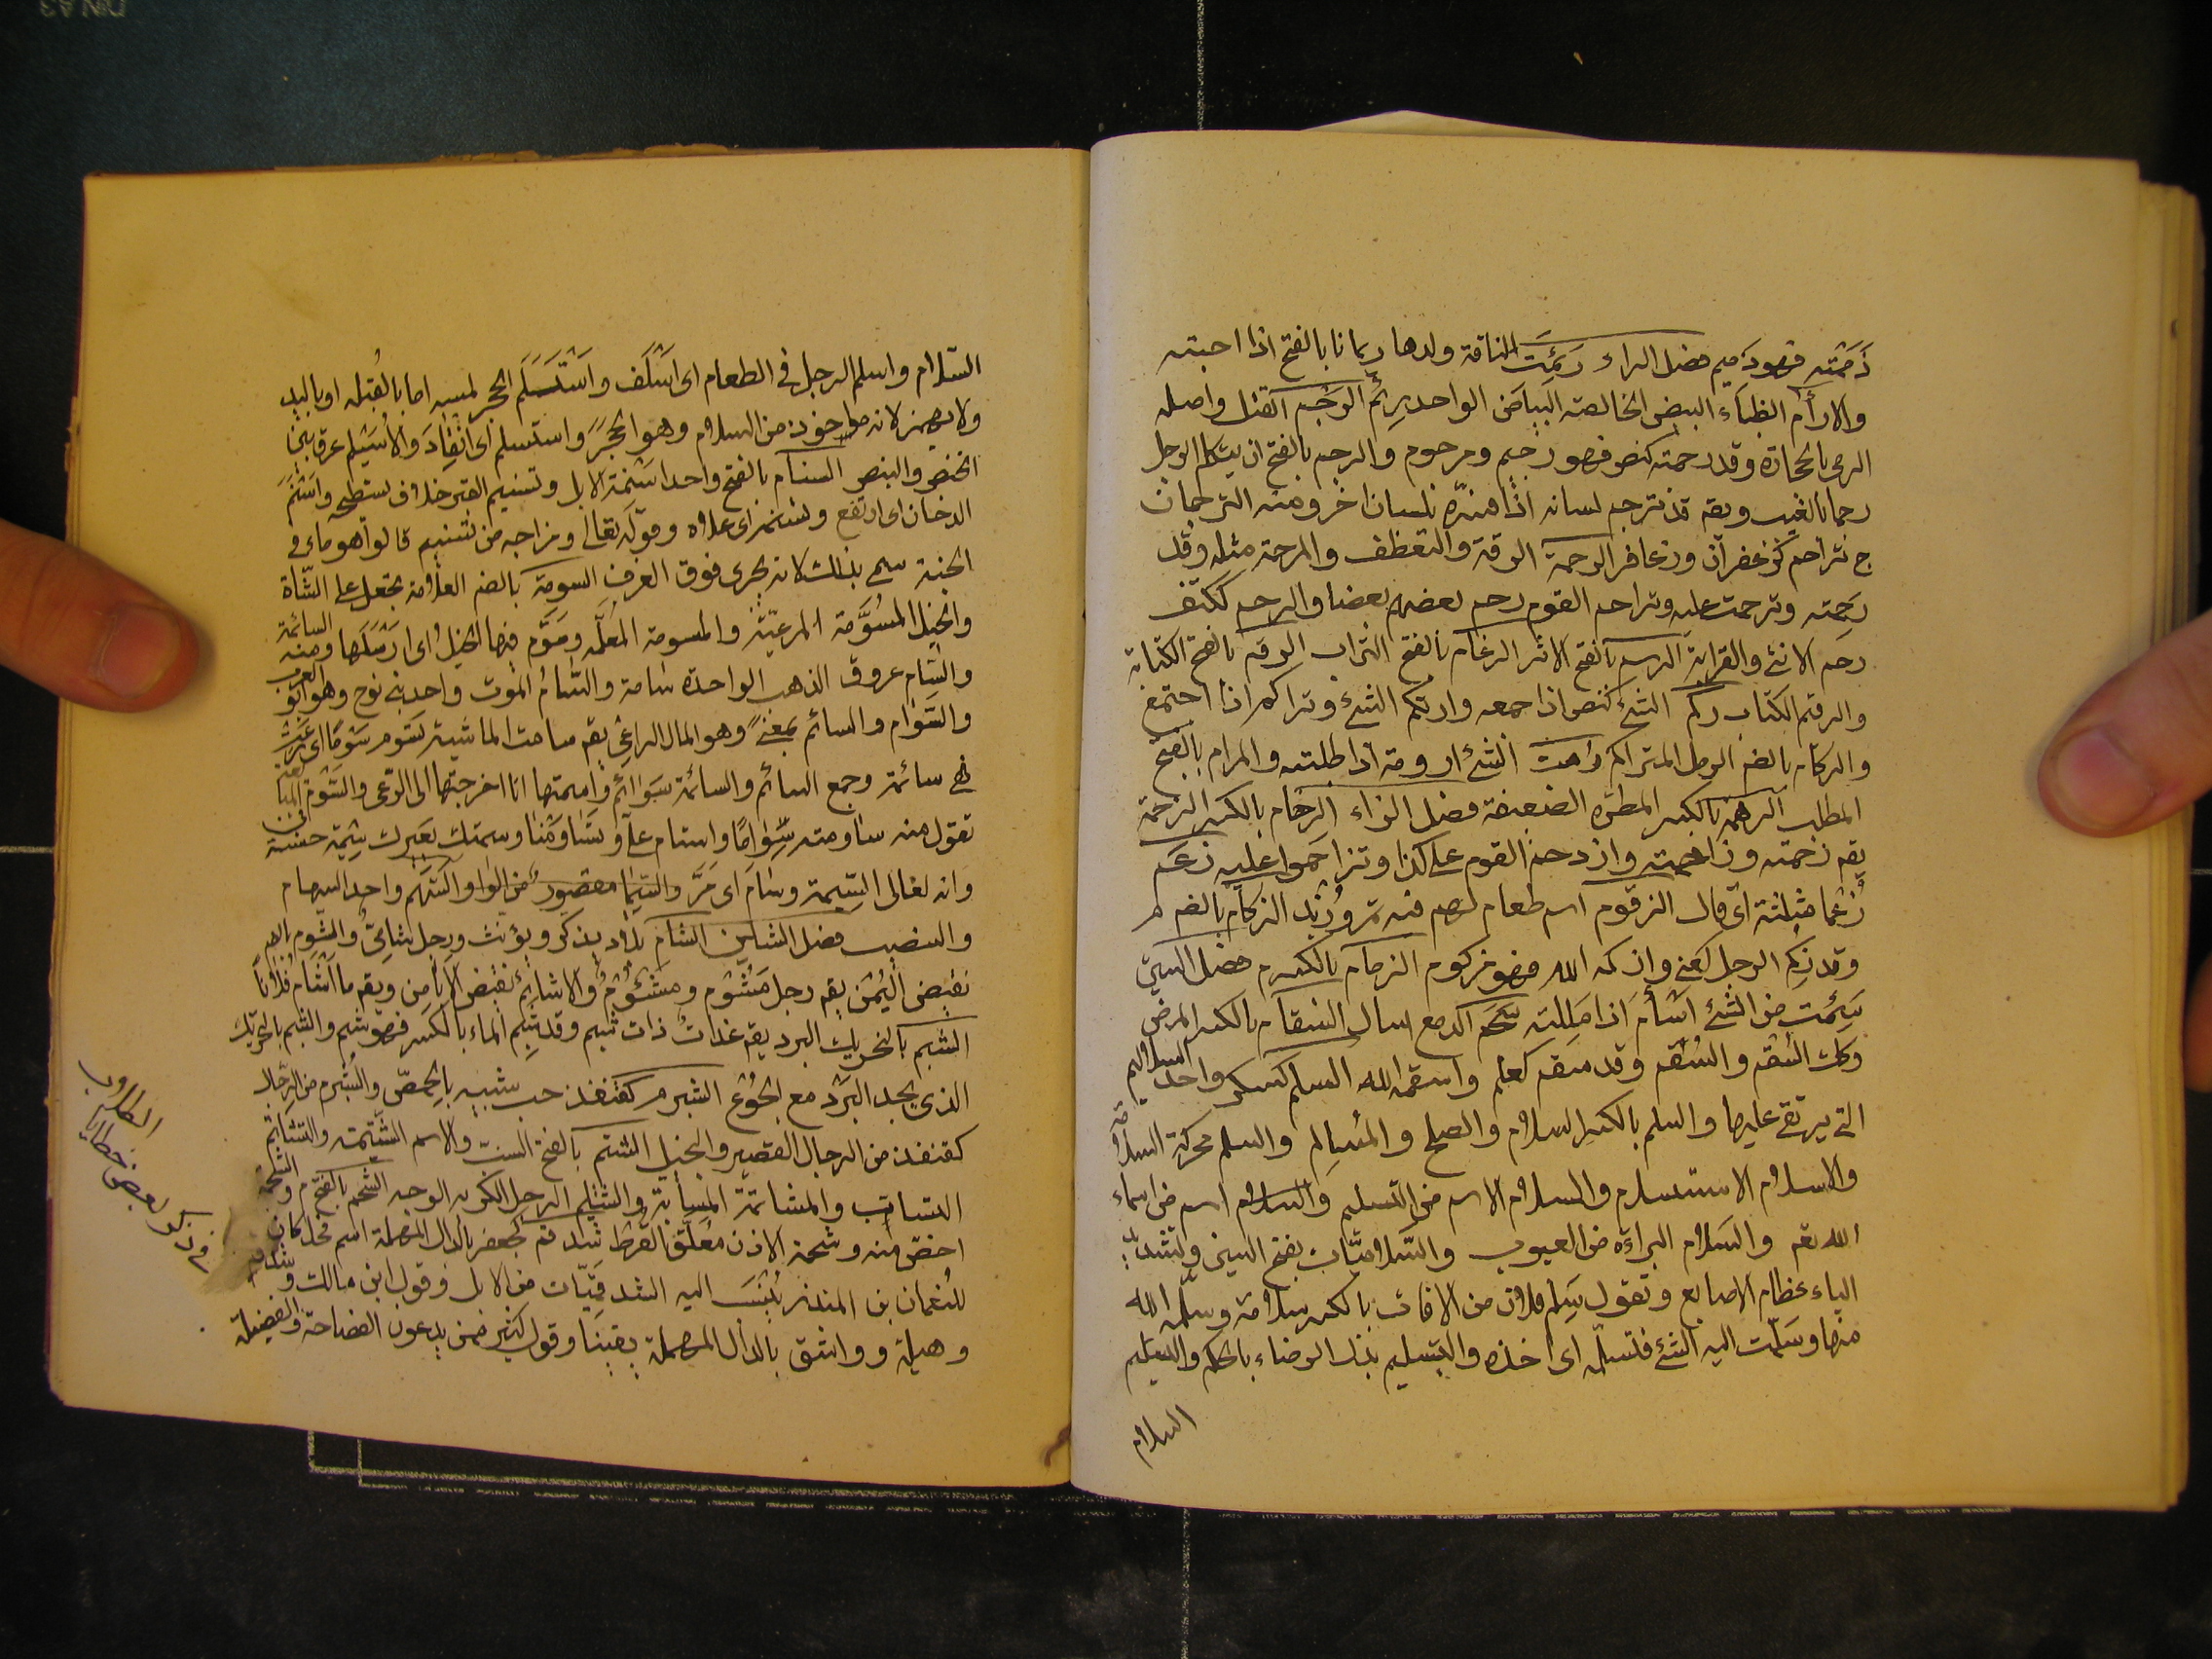 ذَمَمْتُه فهو ذميم فصل الراء رَئِمَت الناقة ولدها ريمانا بالفتح اذا احبته
والارأم الظباء البيض الخالصة البياض الواحد رِئم الرَجْم القتل واصله
الرمى بالحجارة وقد رجمته كنصر فهو رجيم ومرجوم والرجم بالفتح ان يتكلم الرجل
رجما بالغيب ويقم قد ترجم لسانه اذا فسّره بلسان اخر ومنه الترجمان
ج تراجم كزعفران وزعافر الرحمة الرقة والتعطف والمرحمة مثله وقد
رحمته وترحمت عليه وتراحم القوم رحم بعضهم بعضا والرحم ككتف
رحم الانثى والقرابة الرسم بالفتح الاثر الرغام بالفتح التراب الرقم بالفتح الكتابة
والرقيم الكتاب ركم الشئ كنصر اذا جمعه وارتكم الشئ وتراكم اذا اجتمع
والركام بالضم الرمل المتراكم رمت الشئ ارومه اذا طلبته والمرام بالفتح
المطلب الرهمة بالكسر المطرة الضعيفة فصل الزاء الزحام بالكسر الزحمة
يقم زحمته وزاحمته وازدحم القوم على كذا وتزاحموا عليه زعم
زُعْما مثلثة اى قال الزقوم اسم طعام لهم فيه تمر وزُبْد الزكام بالضم م
وقد زكم الرجل كعنى وازكمه الله فهو مزكوم الزمام بالكسر م فصل السين
سَئِمت من الشئ اَسْأَم اذا مَلِلته سَجَم الدمع سال السقام بالكسر المرض
وكك السُقْم والسَقَم وقد سقم كعلم واسقمه الله السلم كسكر واحد السلاليم
التى يرتقى عليها والسلم بالكسر السلام والصلح والمُسالِم والسلم محركة السلامة
والاسلام الاستسلام والسلام الاسم من التسليم والسلام اسم من اسماء
الله تعم والسلام البراءة من العيوب والسُلاميَّات بفتح السين وتشديد
الياء عظام الاصابع وتقول سَلِم فلان من الافات بالكسر سلامة وسلّمه الله
منها وسَلّمت اليه الشئ فتسلّمه اى اخذه والتسليم بذل الرضاء بالحكم والتسليم
السلام
السّلام واسلم الرجل فى الطعام اى اَسْلَف واَسْتَلَم الحجر لمسه اما بالقُبلة او باليد
ولا يهمز لانه ماخوذ من السلام وهو الحجرَ واستسلم اى انْقادَ والاُسَيْلِم عرق بين
الخنصر والبنصر السنام بالفتح واحد اسْنِمَة الابل وتسنيم القبر خلاف تسطيحه واسْنَمَ
الدخان اى ارتفع وتسنّمه اى علاه وقوله تعالى ومزاجه من تسنيم قالوا هو ماء فى
الجنة سمى بذلك لانه يجرى فوق الغرف السومة بالضم العلامة تجعل على الشّاة
والخيل المُسَوَّمَة المرعيّة والمسومة المُعلَّمة وسَوَّم فيها الخيل اى ارسَلَها ومنه السائمة
والسَّام عروق الذهب الواحدة سامة والسّامُ الموت واحد بنى نوح وهو ابو العرب
والسَّوام والسائم بمعنىً وهو المال الراعى يقم سامت الماشية تسوم سَوْمًا اى رَعَتْ
فهى سائمة وجمع السائم والسائمة سَوَائِم واسمتها انا اخرجتها الى الرعى والسَّوْم
تقول منه ساومته سِوامًا واستام على وتساومنا وسمتك بعيرك سِيْمة حسنة
وانه لغالى السِّيمة وسامَ اى مَرَّ والسِّيما مقصور من الواو السَّهْم واحد السهام
والنصيب فصل الشاين الشام بلاد يذكر ويؤنث ورجل شامِىٌّ والشوم
نقيض اليُمْن يقم رجل مَشُوم ومَشْئُوم والاشائِم نقيض الايامن ويقم ما اَشْأم فُلاناً
الشبم بالتحريك البرد يقم غداةٌ ذات شبم وقد شبم الماء بالكسر فهو شَبِم والشبم بالتحريك
الذى يجد البَرْد مع الجُوْع الشبرم كقنفذ حب شبيه بالحِمّص والشُبْرم من الرّجال
كقنفذ من الرجال القصير والبخيل الشتم بالفتح السبّ والاسم الشَّتيمة والتشاتم
التسابّ والمشاتمة المسابّة والشتيم الرجل الكريه الوجه الشحم بالفتح م والشحمة
اخصّ منه وشحمة الاذن مُعلَّق القُرط شدقم كجعفر بالدال المهملة اسم فحل كان
للنُعمان بن المنذر يُنْسَب اليه الشدقميّات من الابل وقول ابن مالك وشذقم
وهيلة وواشق بالدال المهملة يقينا وقول كثير ممن يدعون الفصاحة والفضيلة
فى ذكر بعض خطايا